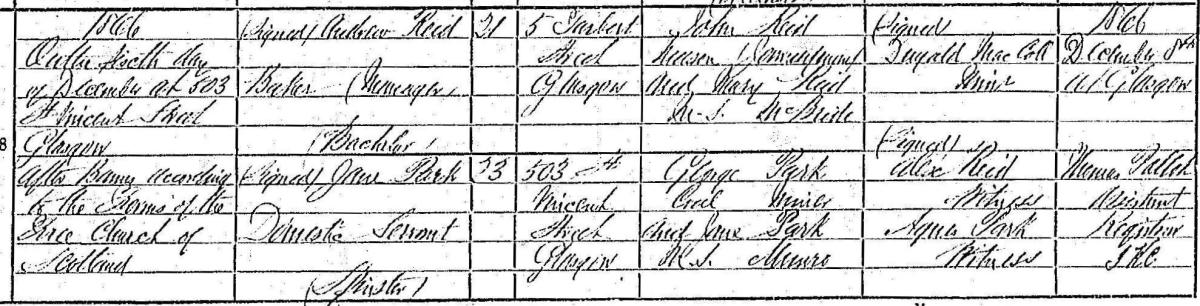 1866
On the sixth day
of December at 503
St Vincent Street
Glasgow
After Banns according
to the Forms of the
Free Church of
Scotland
8
(Signed) Andrew Reid
Baker
(Bachelor)
(Signed) Jane Park
Domestic Servant
(Spinster)
5 Tarbert
Street
Glasgow
503 St
Vincent
Street
Glasgow
John Reid
Mason
and Mary Reid
M.S. McBride
George Park
Coal Miner
and Jane Park
M.S. Munro
(Signed)
Dugald MacColl
Minr
(Signed)
Alexr Reid
Witness
Agnes Park
Witness
1866
December 8th
at Glasgow
Assistant
Registrar